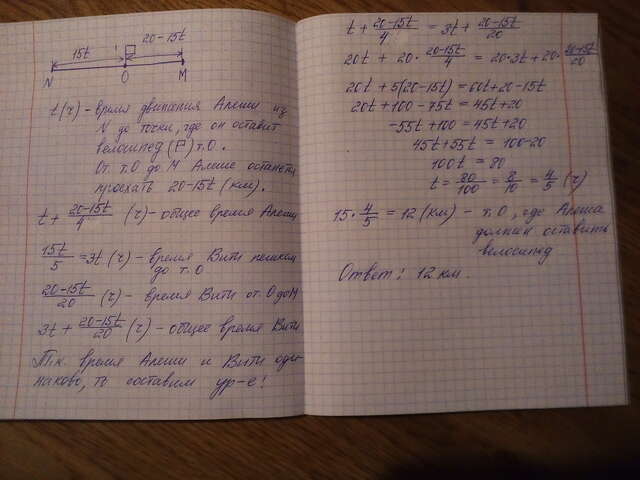 15t
20-15t
N
O
M
t(ч)- время движения Алеши из
N до точки, где он оставит
велосипед (P) т.О.
От т.О до М Алеше останется
проехать 20-15t (км).
t+ (20-15t)/4 (ч)- общее время Алеши
15t/5 = 3t (ч) - время Вити пешком
до т.О
(20-15t)/20 (ч) - время Вити от О до М
3t+ (20-15t)/20 (ч) - общее время Вити
Т.к. время Алеши и Вити оди-
наково, то составим ур-е!
t+ (20-15t)/4 = 3t+ (20-15t)/20
20t + 20· (20-15t)/4 = 20·3t+20· (20-15t)/20
20t + 5(20-15t) = 60t+20-15t
20t+100-75t = 45t+20
-55t+100=45t+20
45t+55t = 100-20
100t = 80
t= 80/100 = 8/10 = 4/5 (ч)
15· 4/5 = 12 (км) - т.О, где Алеша
должен оставить
велосипед
Ответ: 12 км.